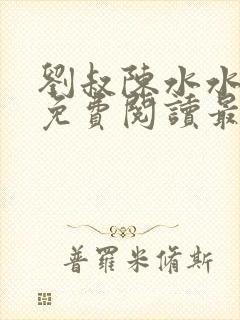 劉叔陳水水
免費閱讀最
普羅米脩斯